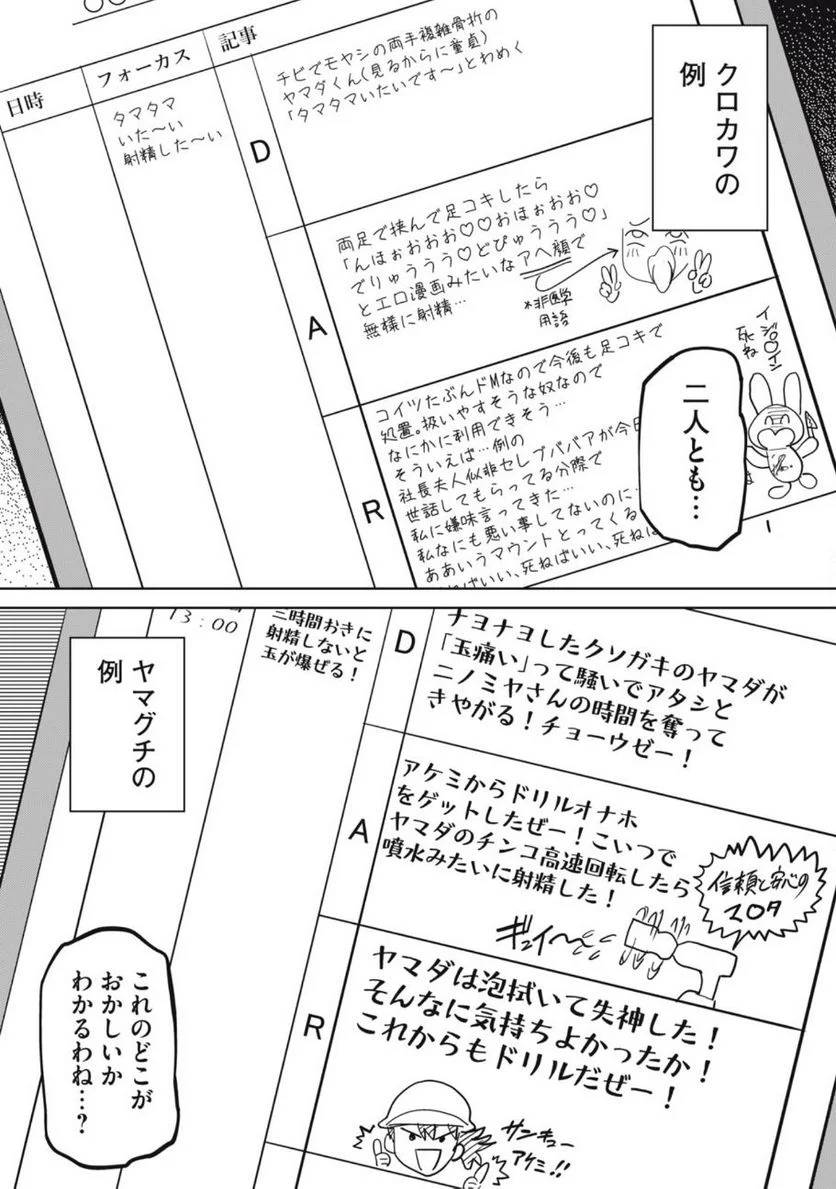 クロカワの
例
日時
フォーカス
記事
タマタマ
いた～い
射精した～い
D
チビでモヤシの両手複雑骨折の
ヤマダくん(見るからに童貞)
「タマタマいたいです～」とわめく
A
両足で挟んで足コキしたら
「んほぉおおお♡♡おほぉおお♡
でりゅううう♡どぴゅううう♡」
とエロ漫画みたいなアヘ顔で
無様に射精…
*非医学
用語
R
コイツたぶんドMなので今後も足コキで
処置。扱いやすそうな奴なので
なにかに利用できそう…
そういえば…例の
社長夫人似非セレブババアが今日
世話してもらってる分際で
私に嫌味言ってきた…
私なにも悪い事してないのに…
ああいうマウントとってくる
ばいい、死ねばいい、死ねば
死ね
二人とも…
1
ヤマグチの
例
13：00
三時間おきに
射精しないと
玉が爆ぜる！
D
ナヨナヨしたクソガキのヤマダが
「玉痛い」って騒いでアタシと
ニノミヤさんの時間を奪って
きやがる！チョーウゼー！
A
アケミからドリルオナホ
をゲットしたぜー！こいつで
ヤマダのチンコ高速回転したら
噴水みたいに射精した！
信頼と安心の
マロタ
ギュイ～ン
R
ヤマダは泡拭いて失神した！
そんなに気持ちよかったか！
これからもドリルだぜー！
サンキュー
アケミ!!
これのどこが
おかしいか
わかるわね…？